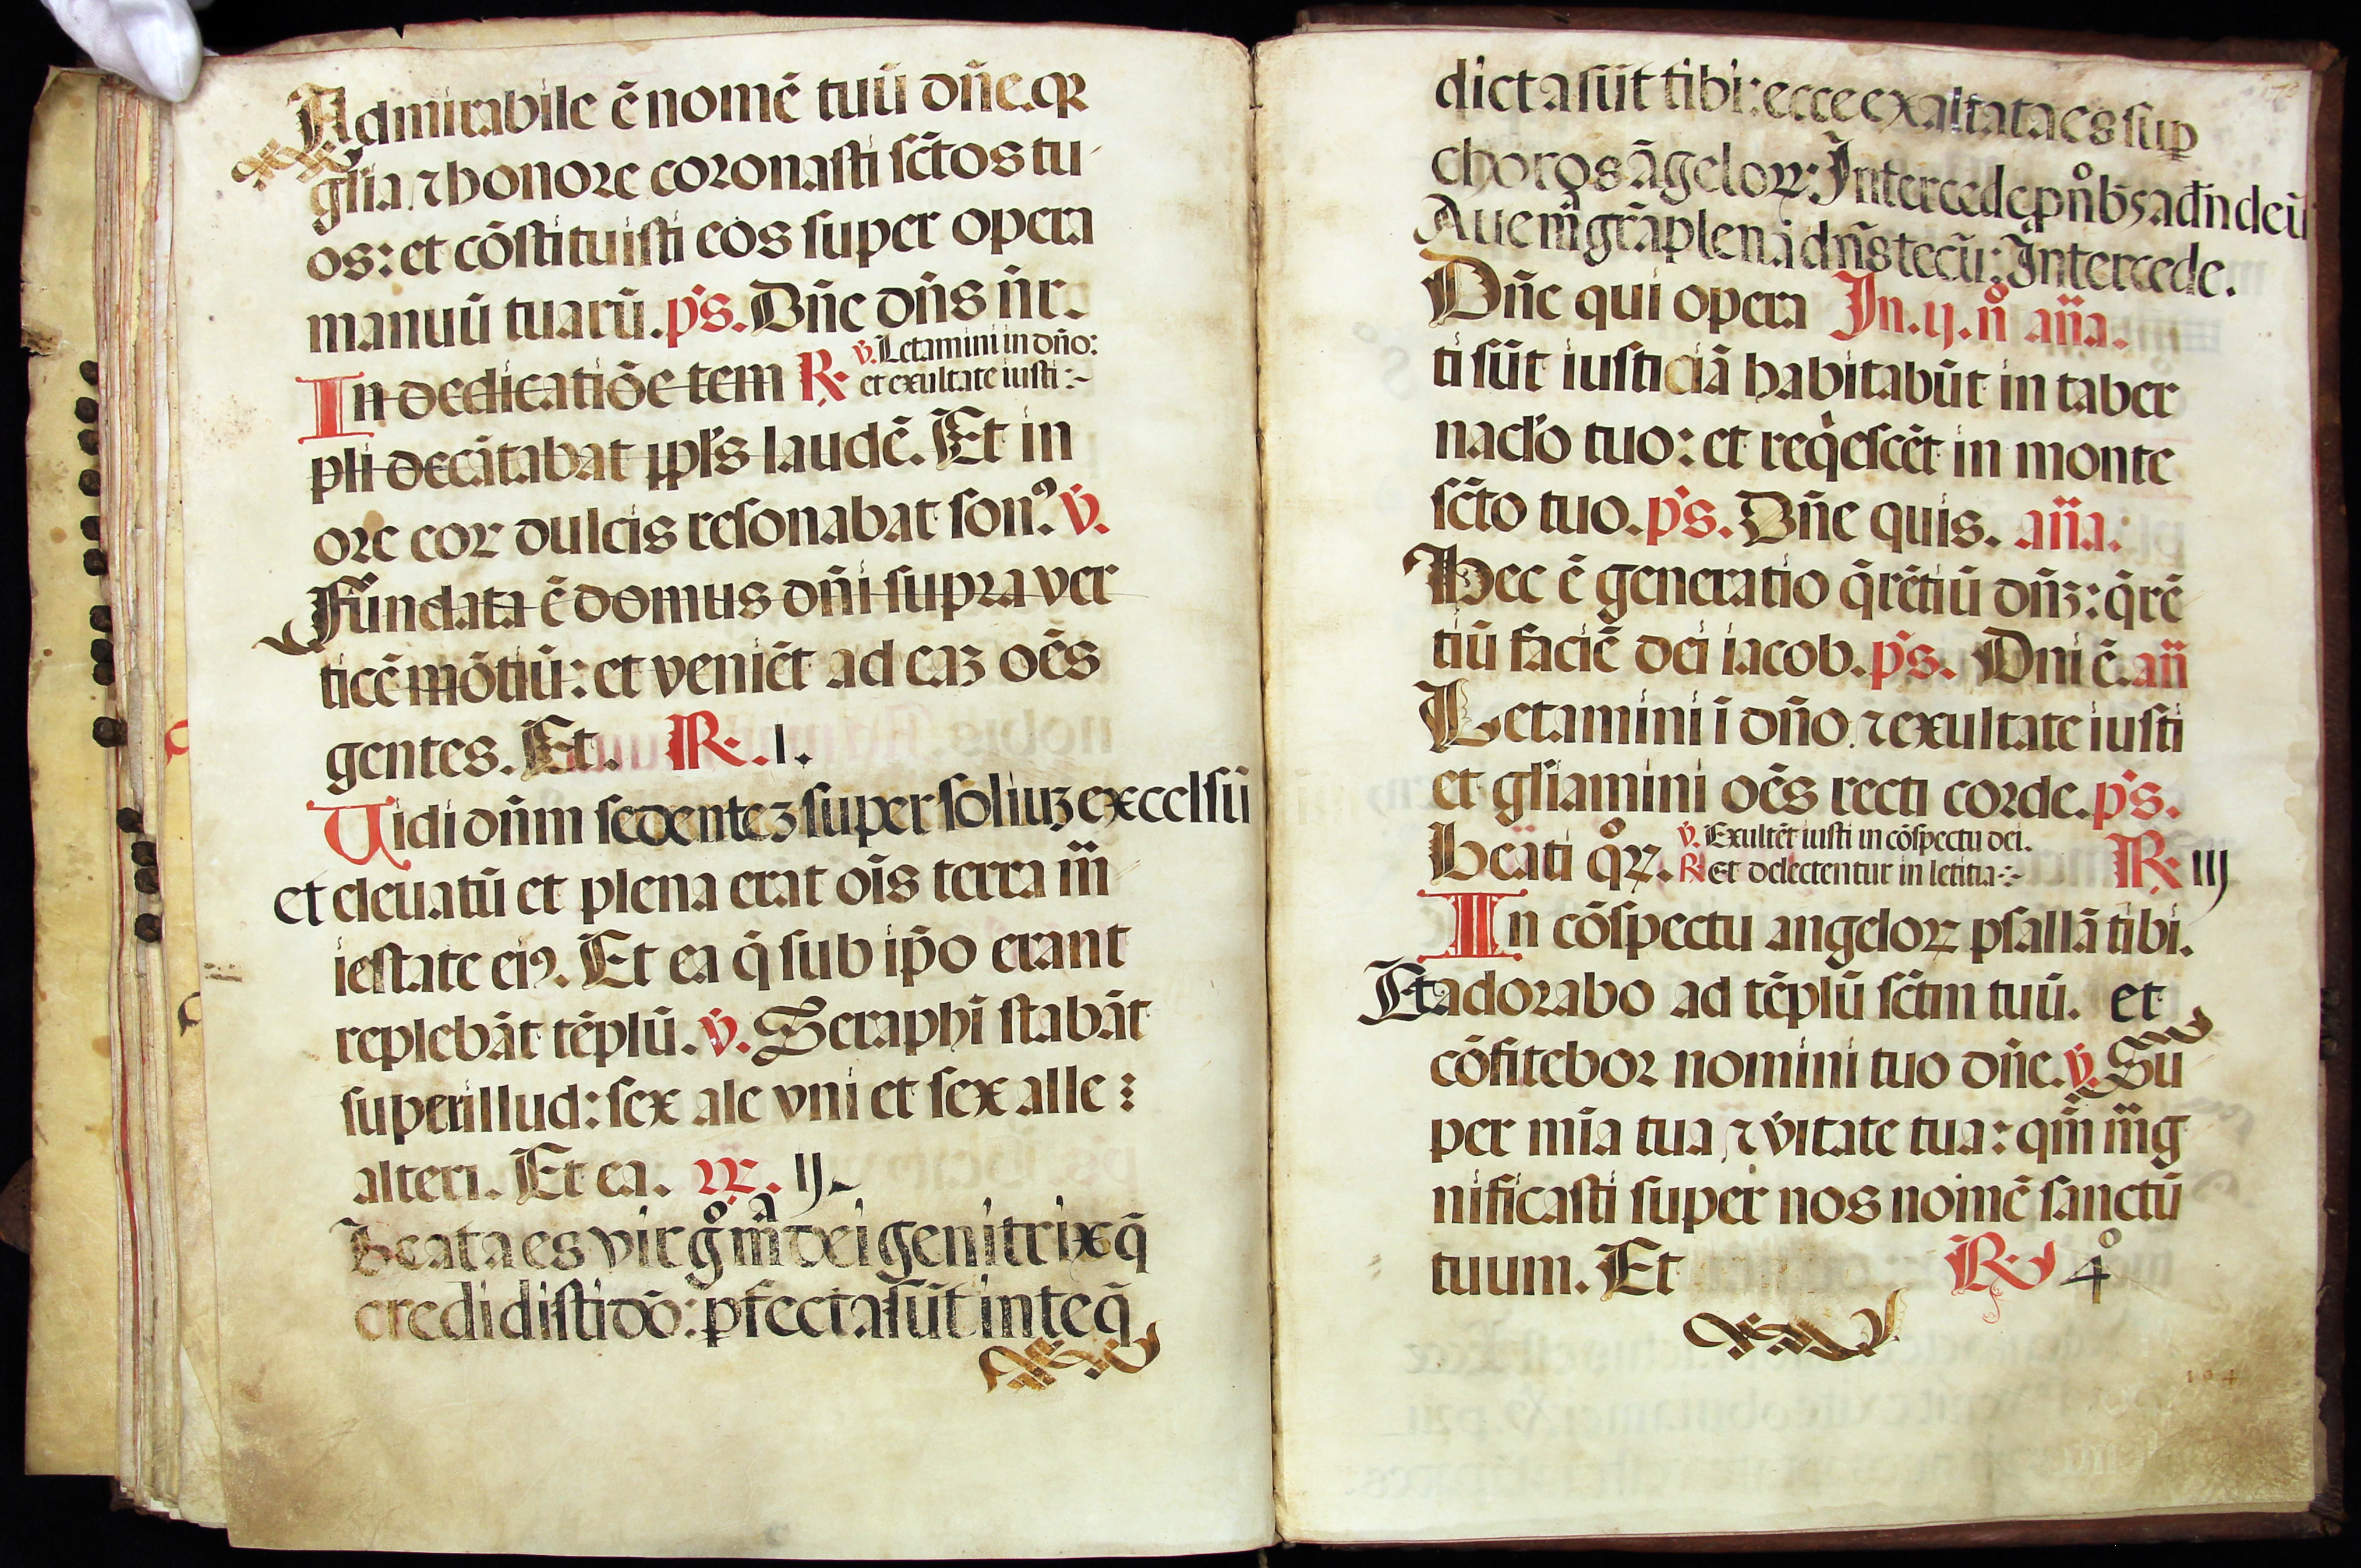 Admirabile ē nomē tuū dñe. qꝛ
gl'ia ⁊ honore coronasti sc̄tos tu
os: et cōstituisti eos super opera
manuū tuarū. p̄s. Dñe dñs ñr.
In dedicatiōe tem R. v̇. Letamini in dño:
et exultate iusti :~
pli decātabat ppl's laudē. Et in
ore eoꝝ dulcis resonabat son⁹. v̇.
Fūndata ē domus dñi supra ver
ticē mōtiū: et veniēt ad eaꝫ oēs
gentes. Et. R. .I.
Uidi dñm sedenteꝫ super soliuꝫ excelsū
et eleuatū et plena erat oīs terra m̄
iestate ei⁹. Et ea q̄ sub ip̄o erant
replebāt tēplū. v̇. Seraphī stabāt
super illud: sex ale vni et sex alle :
alteri. Et ea. R. ij.
Beata es virgº mª dei genitrix q̄
credidisti dō: ꝑfecta sūt in te q̄
dicta sūt tibi: ecce exaltata es suꝑ
choros āgeloꝝ: Intercede ꝓ nºbꝫ ad dñ deū
Aue mª grā plena dñs tecū: Intercede.
Dñe qui opera In. ij. nº aña.
ti sūt iusticiā habitabūt in taber
nacl'o tuo: et reqͥescēt in monte
sc̄to tuo. p̄s. Dñe quis. aña.
Hec ē generatio q̄rētiū dñꝫ: q̄rē
tiū faciē dei iacob. p̄s. Dni ē. añ
Letamini ī dño ⁊ exultate iusti
et gl'iamini oēs recti corde. p̄s.
beāti qºꝝ. v̇. Exultēt iusti in cōspectu dei.
R. Et delectentur in letitia :~ R. iij
In cōspectu angeloꝝ psallā tibi.
Et adorabo ad tēplū sc̄tm tuū. et
cōfitebor nomini tuo dñe. v̇. Su
per mīa tua ⁊ v̇itate tua: qm̄ m̄g
nificasti super nos nomē sanctū
tuum. Et R. 4º
104